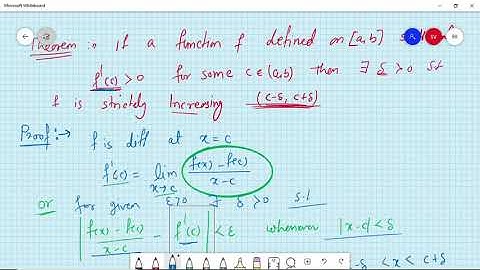 Microsoft Whiteboard
Theorem :- If a function f defined on [a,b]
f'(c) > 0 for some c ∈ (a,b) then ∃ δ > 0 s.t
f is strictly Increasing (c-δ, c+δ)
Proof :→ f is diff at x = c
f'(c) = lim x→c f(x) - f(c) / x - c
or for given ε>0 ∃ δ > 0 s.t
| f(x) - f(c) / x-c - f'(c) | < ε whenever |x-c| < δ
-δ < x < c+δ